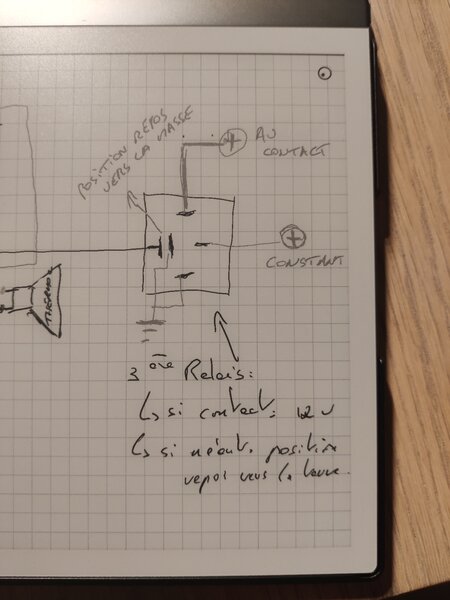 POSITION REPOS
VERS LA MASSE
+ AU
CONTACT
+
CONSTANT
3 ème Relais:
↳ si contact: 12 V
↳ si position
repos vers la